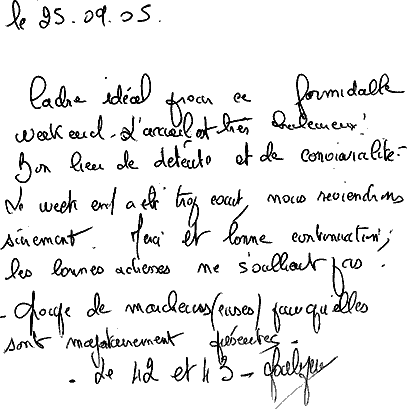 le 25.09.05.
Cadre idéal pour ce formidable
week end. L'accueil est très chaleureux!
Bon lieu de détente et de convivialité.
Le week end a été trop court, nous reviendrons
sûrement. Merci et bonne continuation;
les bonnes adresses ne s'oublient pas!
- Groupe de marcheurs (euses) puisqu'elles
sont majoritairement présentes -
- Le 42 et 43 -